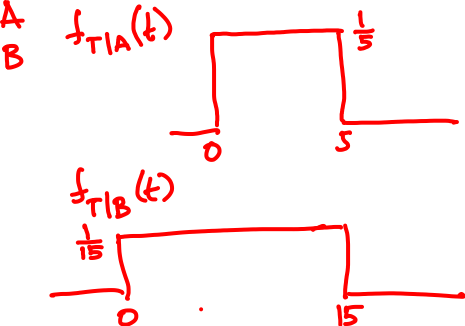 A
B
f_{T|A}(t)
1/5
0 5
f_{T|B}(t)
1/15
0 15